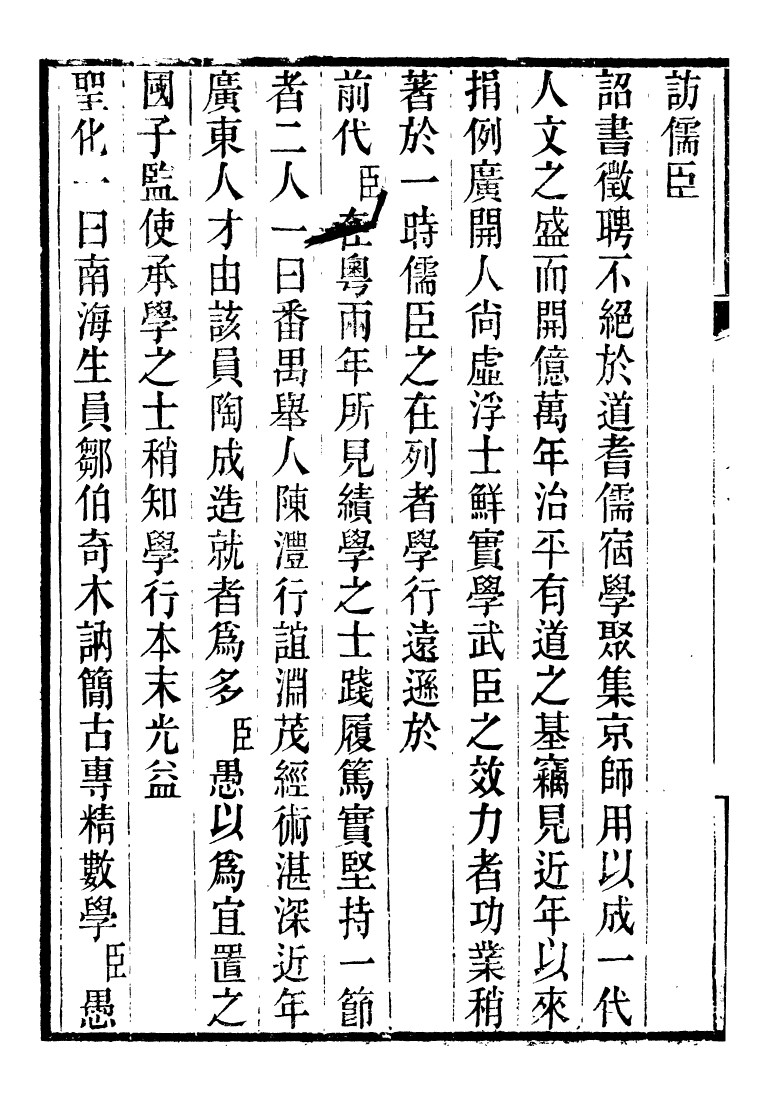 訪儒臣
詔書徵聘不絕於道耆儒宿學聚集京師用以成一代
人文之盛而開億萬年治平有道之基竊見近年以來
捐例廣開人尙虛浮士鮮實學武臣之效力者功業稍
著於一時儒臣之在列者學行遠遜於
前代臣在粵兩年所見績學之士踐履篤實堅持一節
者二人一曰番禺舉人陳澧行誼淵茂經術湛深近年
廣東人才由該員陶成造就者爲多臣愚以爲宜置之
國子監使承學之士稍知學行本末光益
聖化一曰南海生員鄒伯奇木訥簡古專精數學臣愚